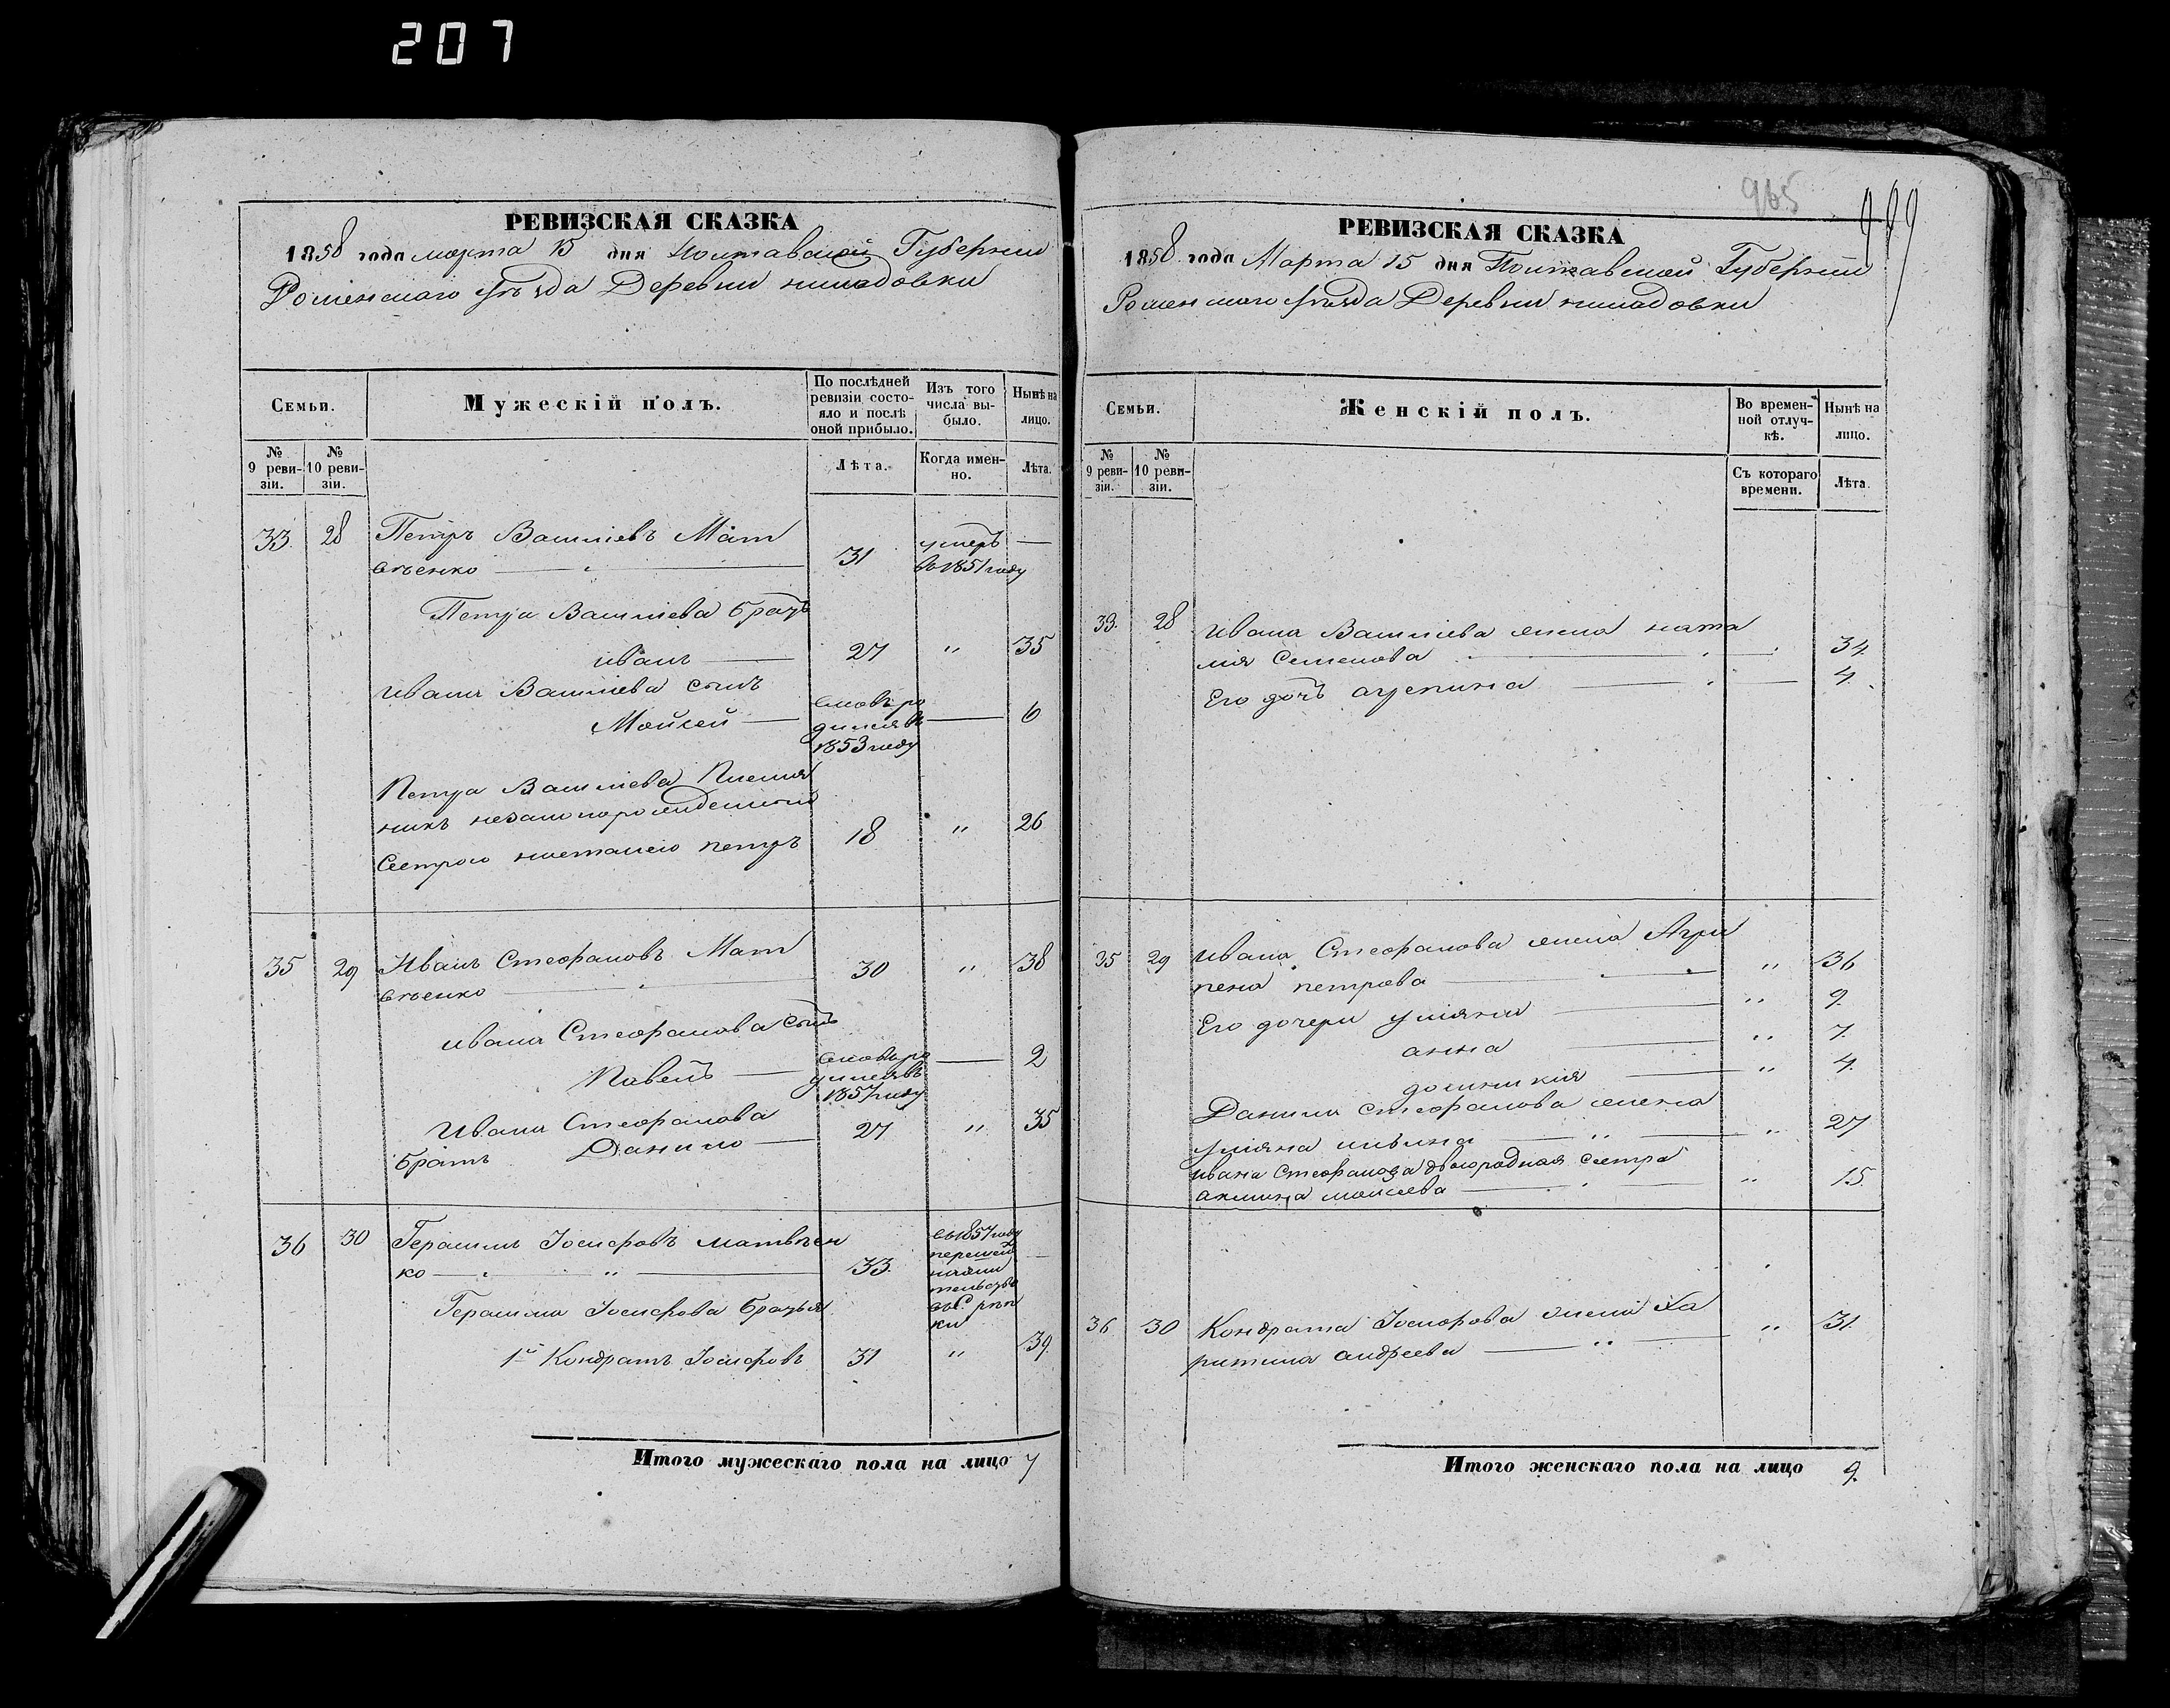 207
РЕВИЗСКАЯ СКАЗКА
1858 года марта 15 дня Полтавской Губернии
Роменскаго уѣзда Деревни
Семьи.
Мужескій полъ.
По послѣдней ревизіи состояло и послѣ оной прибыло.
Изъ того числа выбыло.
Нынѣ на лицо.
№ 9 ревизіи.
№ 10 ревизіи.
Лѣта.
Когда именно.
Лѣта.
33. 28 Петръ Василіевъ Мат
вѣенко 31 умеръ в 1851 году —
Петра Василіева братъ
иванъ — 27 " 35
ивана Василіева сынъ
Мойсей — вновь ро
дился въ
1853 году — 6
Петра Василіева Племя
никъ незаконорожденный
Сестрою петръ 18 " 26
35 29 Иванъ Стефановъ Мат
вѣенко 30 " 38
ивана Стефанова сынъ
Павелъ — вновь ро
дился въ
1857 году — 2
Ивана Стефанова
братъ Данило — 27 " 35
36 30 Герасимъ Іосифовъ матвѣен
ко — " — 33. въ 1857 году
перешел
ки
Герасима Іосифова братья
1й Кондратъ Іосифовъ 31 " 39.
Итого мужескаго пола на лицо 7
965
РЕВИЗСКАЯ СКАЗКА
1858 года Марта 15 дня Полтавской Губернии
Роменскаго уѣзда Деревни
Семьи.
Женскій полъ.
Во временной отлучкѣ.
Нынѣ на лицо.
№ 9 ревизіи.
№ 10 ревизіи.
Съ котораго времени.
Лѣта.
33. 28 ивана Василіева жена ната
лія Семенова 34.
Его дочь агрепина 4.
35 29 ивана Стефанова жена Агри
пена петрова " 36
Его дочери уліяна " 9.
анна " 7.
домникія " 4.
Данила стефанова жена
уліяна " 27
ивана Стефанова двоюродная сестра
акилина моисеева " 15.
36 30 Кондрата Іосифова жена Ха
ритина андреева " 31.
Итого женскаго пола на лицо 9.